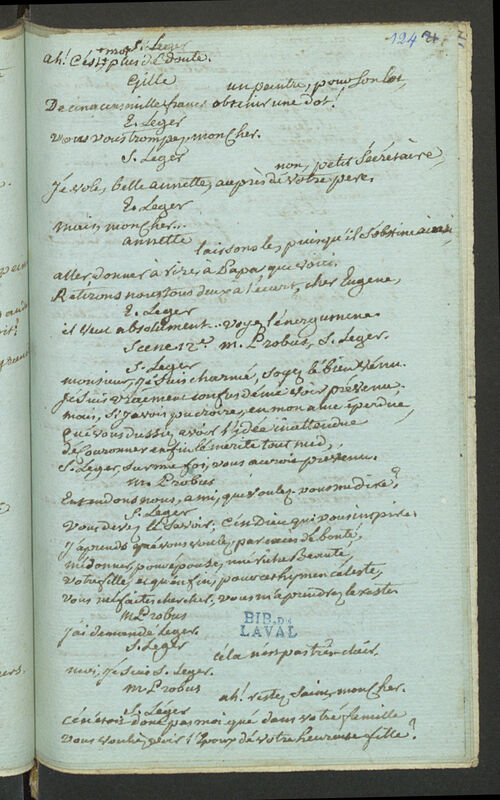 124
S. Leger
ah! C'est moi, plus de doute.
Gille
un peintre, pour son lot,
De cinq cens mille francs obtenir une dot!
E. Leger
Vous vous trompez, mon Cher.
S. Leger
non, petit Sécrétaire,
Je vole, belle annette, auprès de votre pere.
E. Leger
mais, mon cher...
annette
laissons le, puisqu'il s'obstine ainsi,
aller donner à rire à Papa que voici.
Retirons nous tous deux à l'écart, cher Eugene,
E. Leger
il veut absolument... voyez l'énergumene.
Scene 12e. M. Probus, S. Leger.
S. Leger
monsieur, je suis charmé, soyez le bien venu.
Je suis vraiment confus de me voir prévenu.
mais, si j'avois pu croire, en mon ame éperdue,
que vous dussiez avoir l'idée inattendue
de couronner enfin le mérite tout nud,
S. Leger, sur ma foi, vous auroit prévenu.
M. Probus
Entendons nous, ami, que voulez vous me dire?
S. Leger
Vous devez le savoir, C'est Dieu qui vous inspire.
J'aprends que vous voulez, par excès de bonté,
me donner, pour épouse, une riche Beauté,
votre fille, et qu'enfin, pour cet hymen céleste,
vous me faites chercher, vous m'aprendrez le reste.
M. Probus
j'ai demandé Leger.
S. Leger
cela n'est pas très clair.
moi, je suis S. Leger.
M. Probus
ah! restez Saint, mon cher.
S. Leger
Ce n'étoit donc pas moi, que dans votre famille
vous vouliez, pour l'Epoux de votre heureuse fille?
BIB. DE
LAVAL